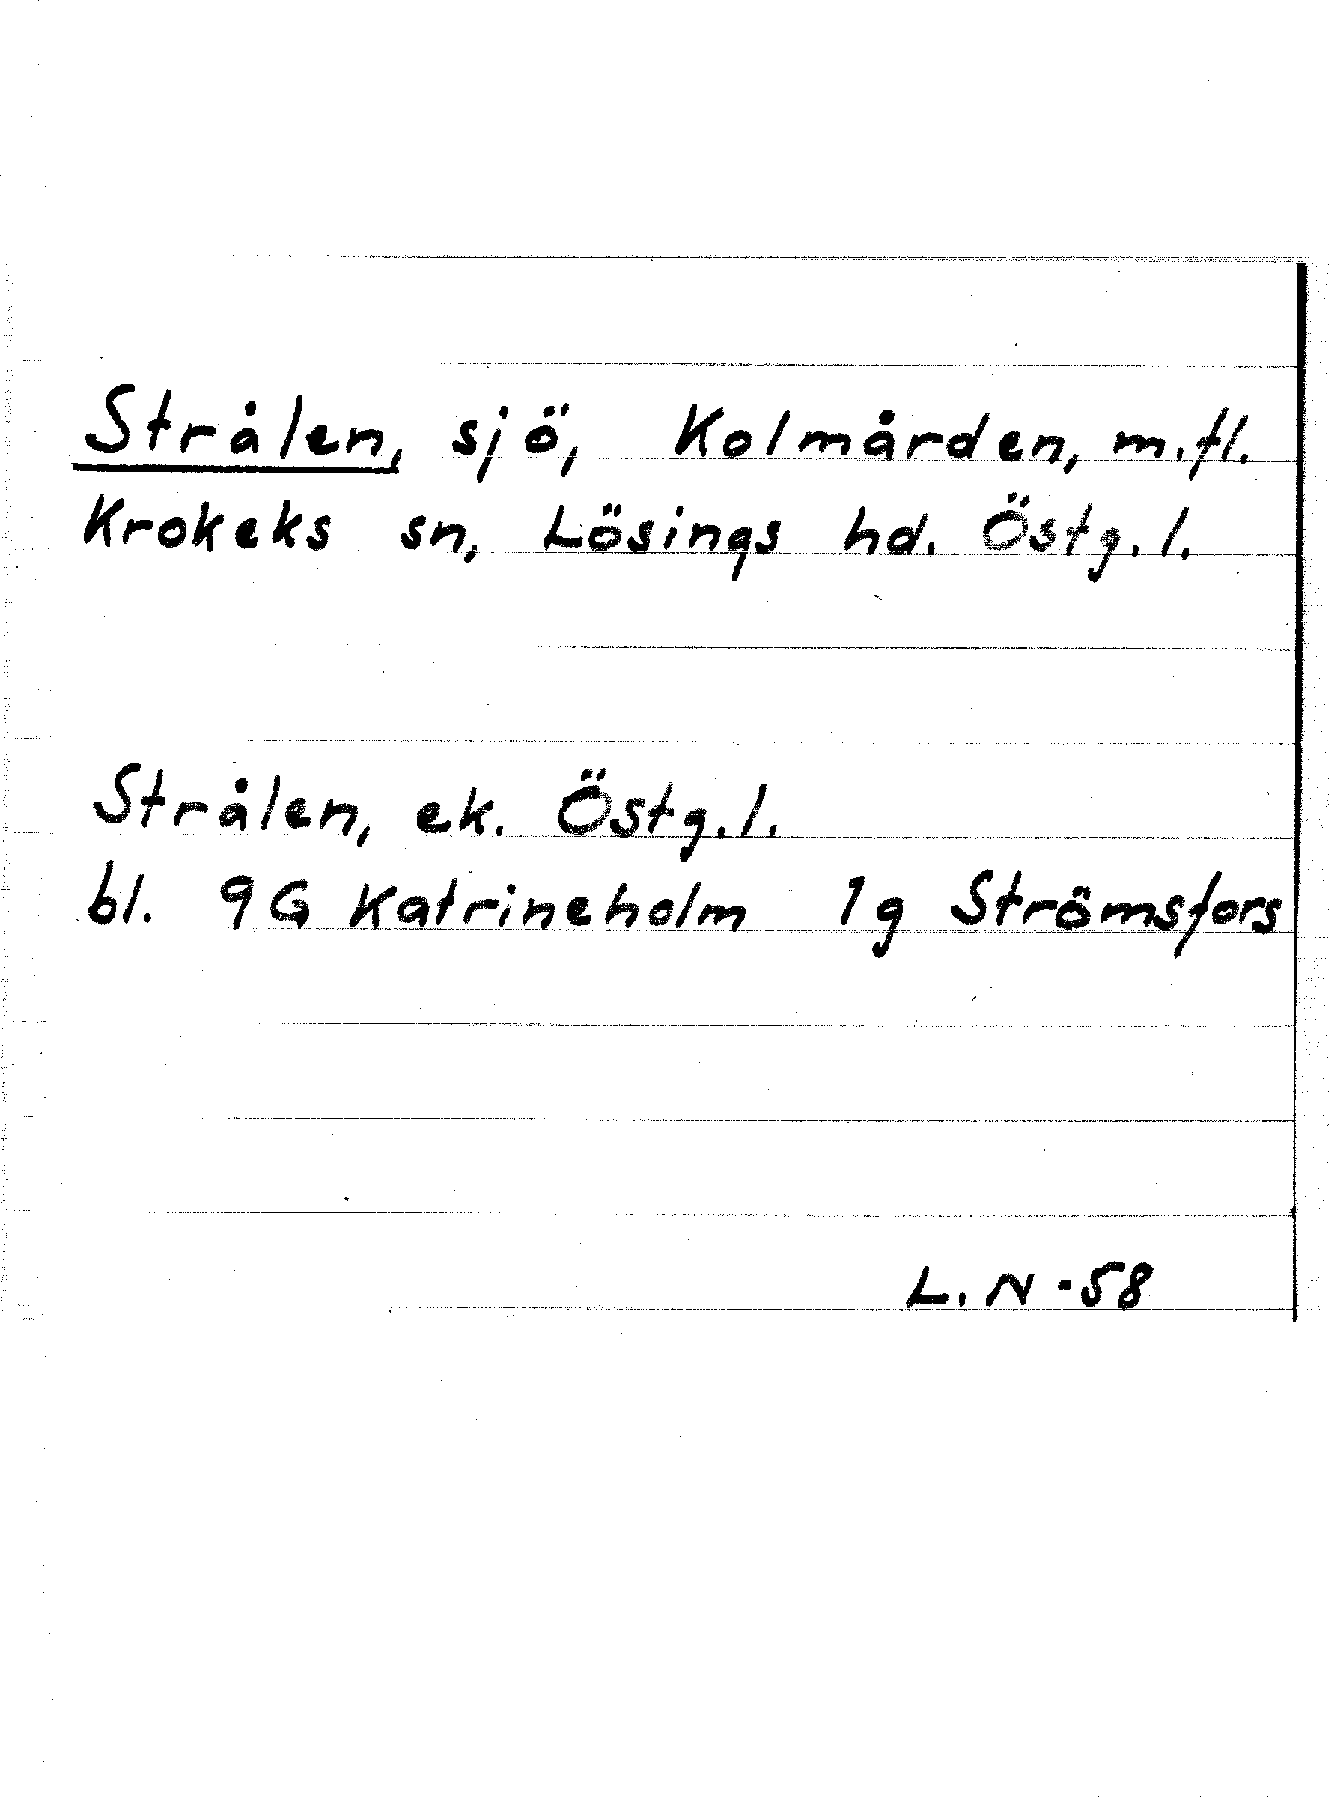 Strålen, sjö, Kolmården, m.fl.
Krokeks sn, Lösings hd. Östg.l.
Strålen, ek. Östg.l.
bl. 9G Katrineholm 1g Strömsfors
L.N -58